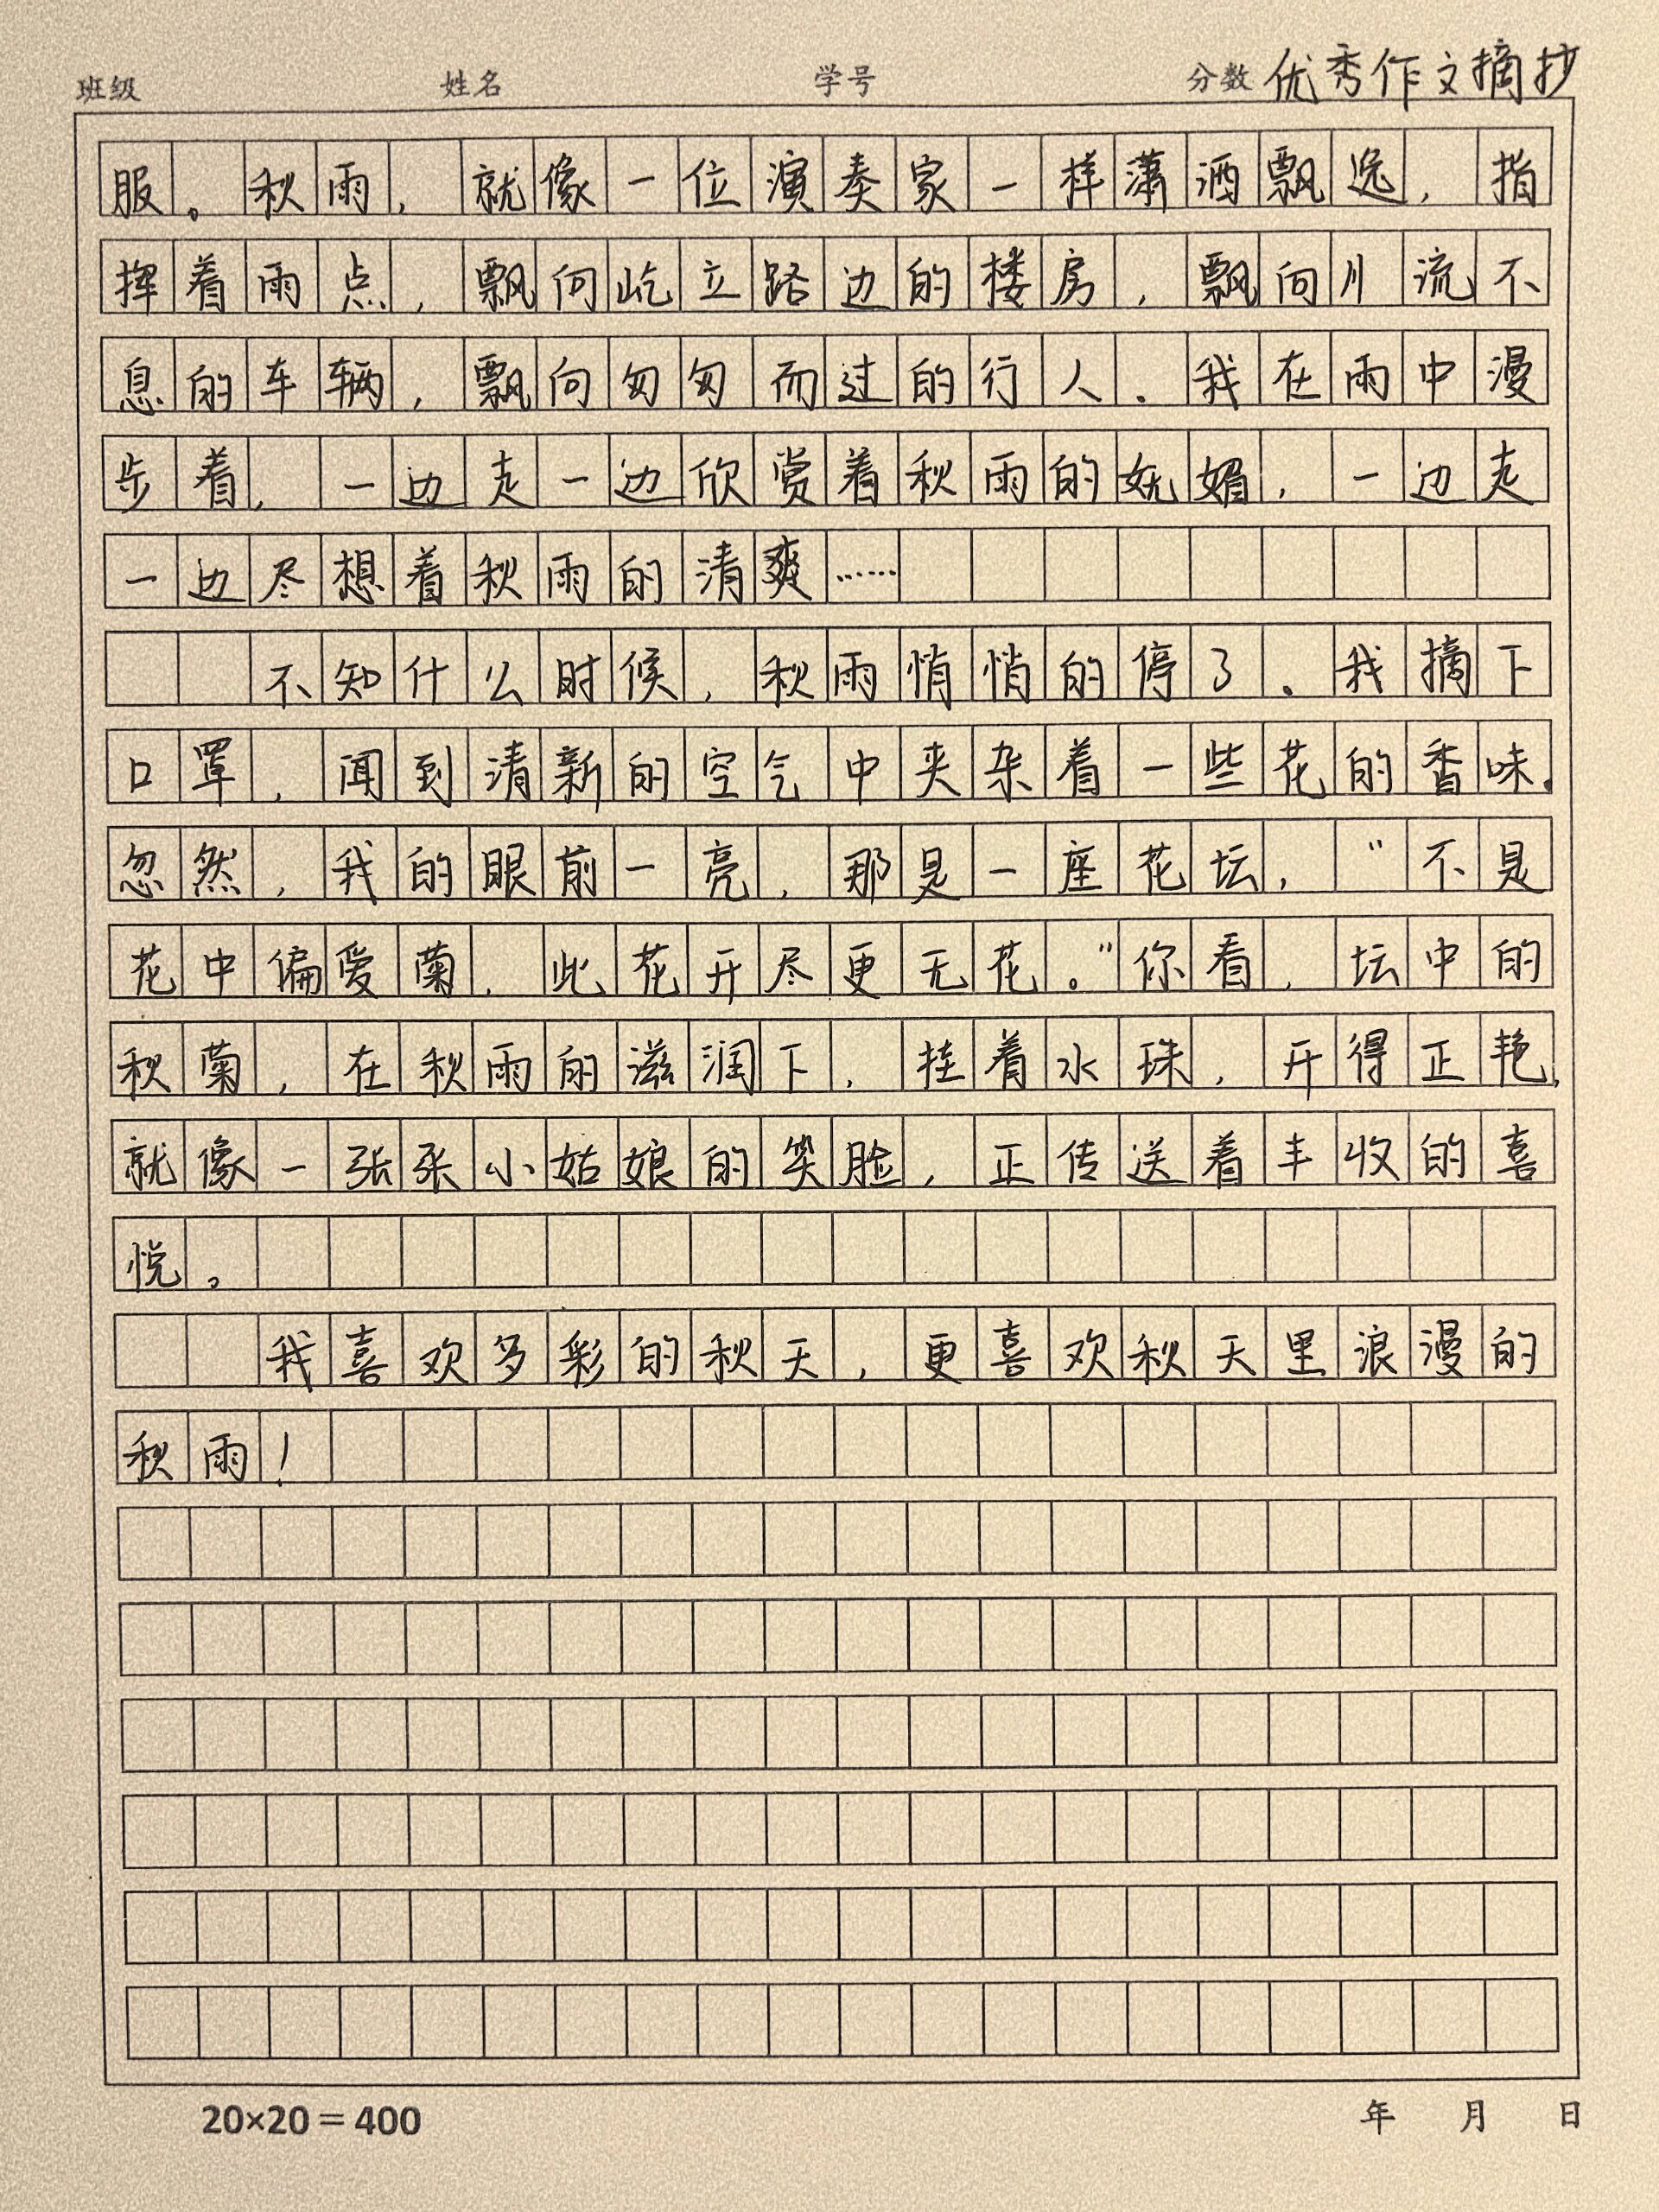 班级 姓名 学号 分数 优秀作文摘抄
服。秋雨，就像一位演奏家一样潇洒飘逸，指
挥着雨点，飘向屹立路边的楼房，飘向川流不
息的车辆，飘向匆匆而过的行人。我在雨中漫
步着，一边走一边欣赏着秋雨的妩媚，一边走
一边尽想着秋雨的清爽……
不知什么时候，秋雨悄悄的停了。我摘下
口罩，闻到清新的空气中夹杂着一些花的香味。
忽然，我的眼前一亮，那是一座花坛，“不是
花中偏爱菊，此花开尽更无花。”你看，坛中的
秋菊，在秋雨的滋润下，挂着水珠，开得正艳，
就像一张张小姑娘的笑脸，正传送着丰收的喜
悦。
我喜欢多彩的秋天，更喜欢秋天里浪漫的
秋雨！
20×20＝400 年 月 日